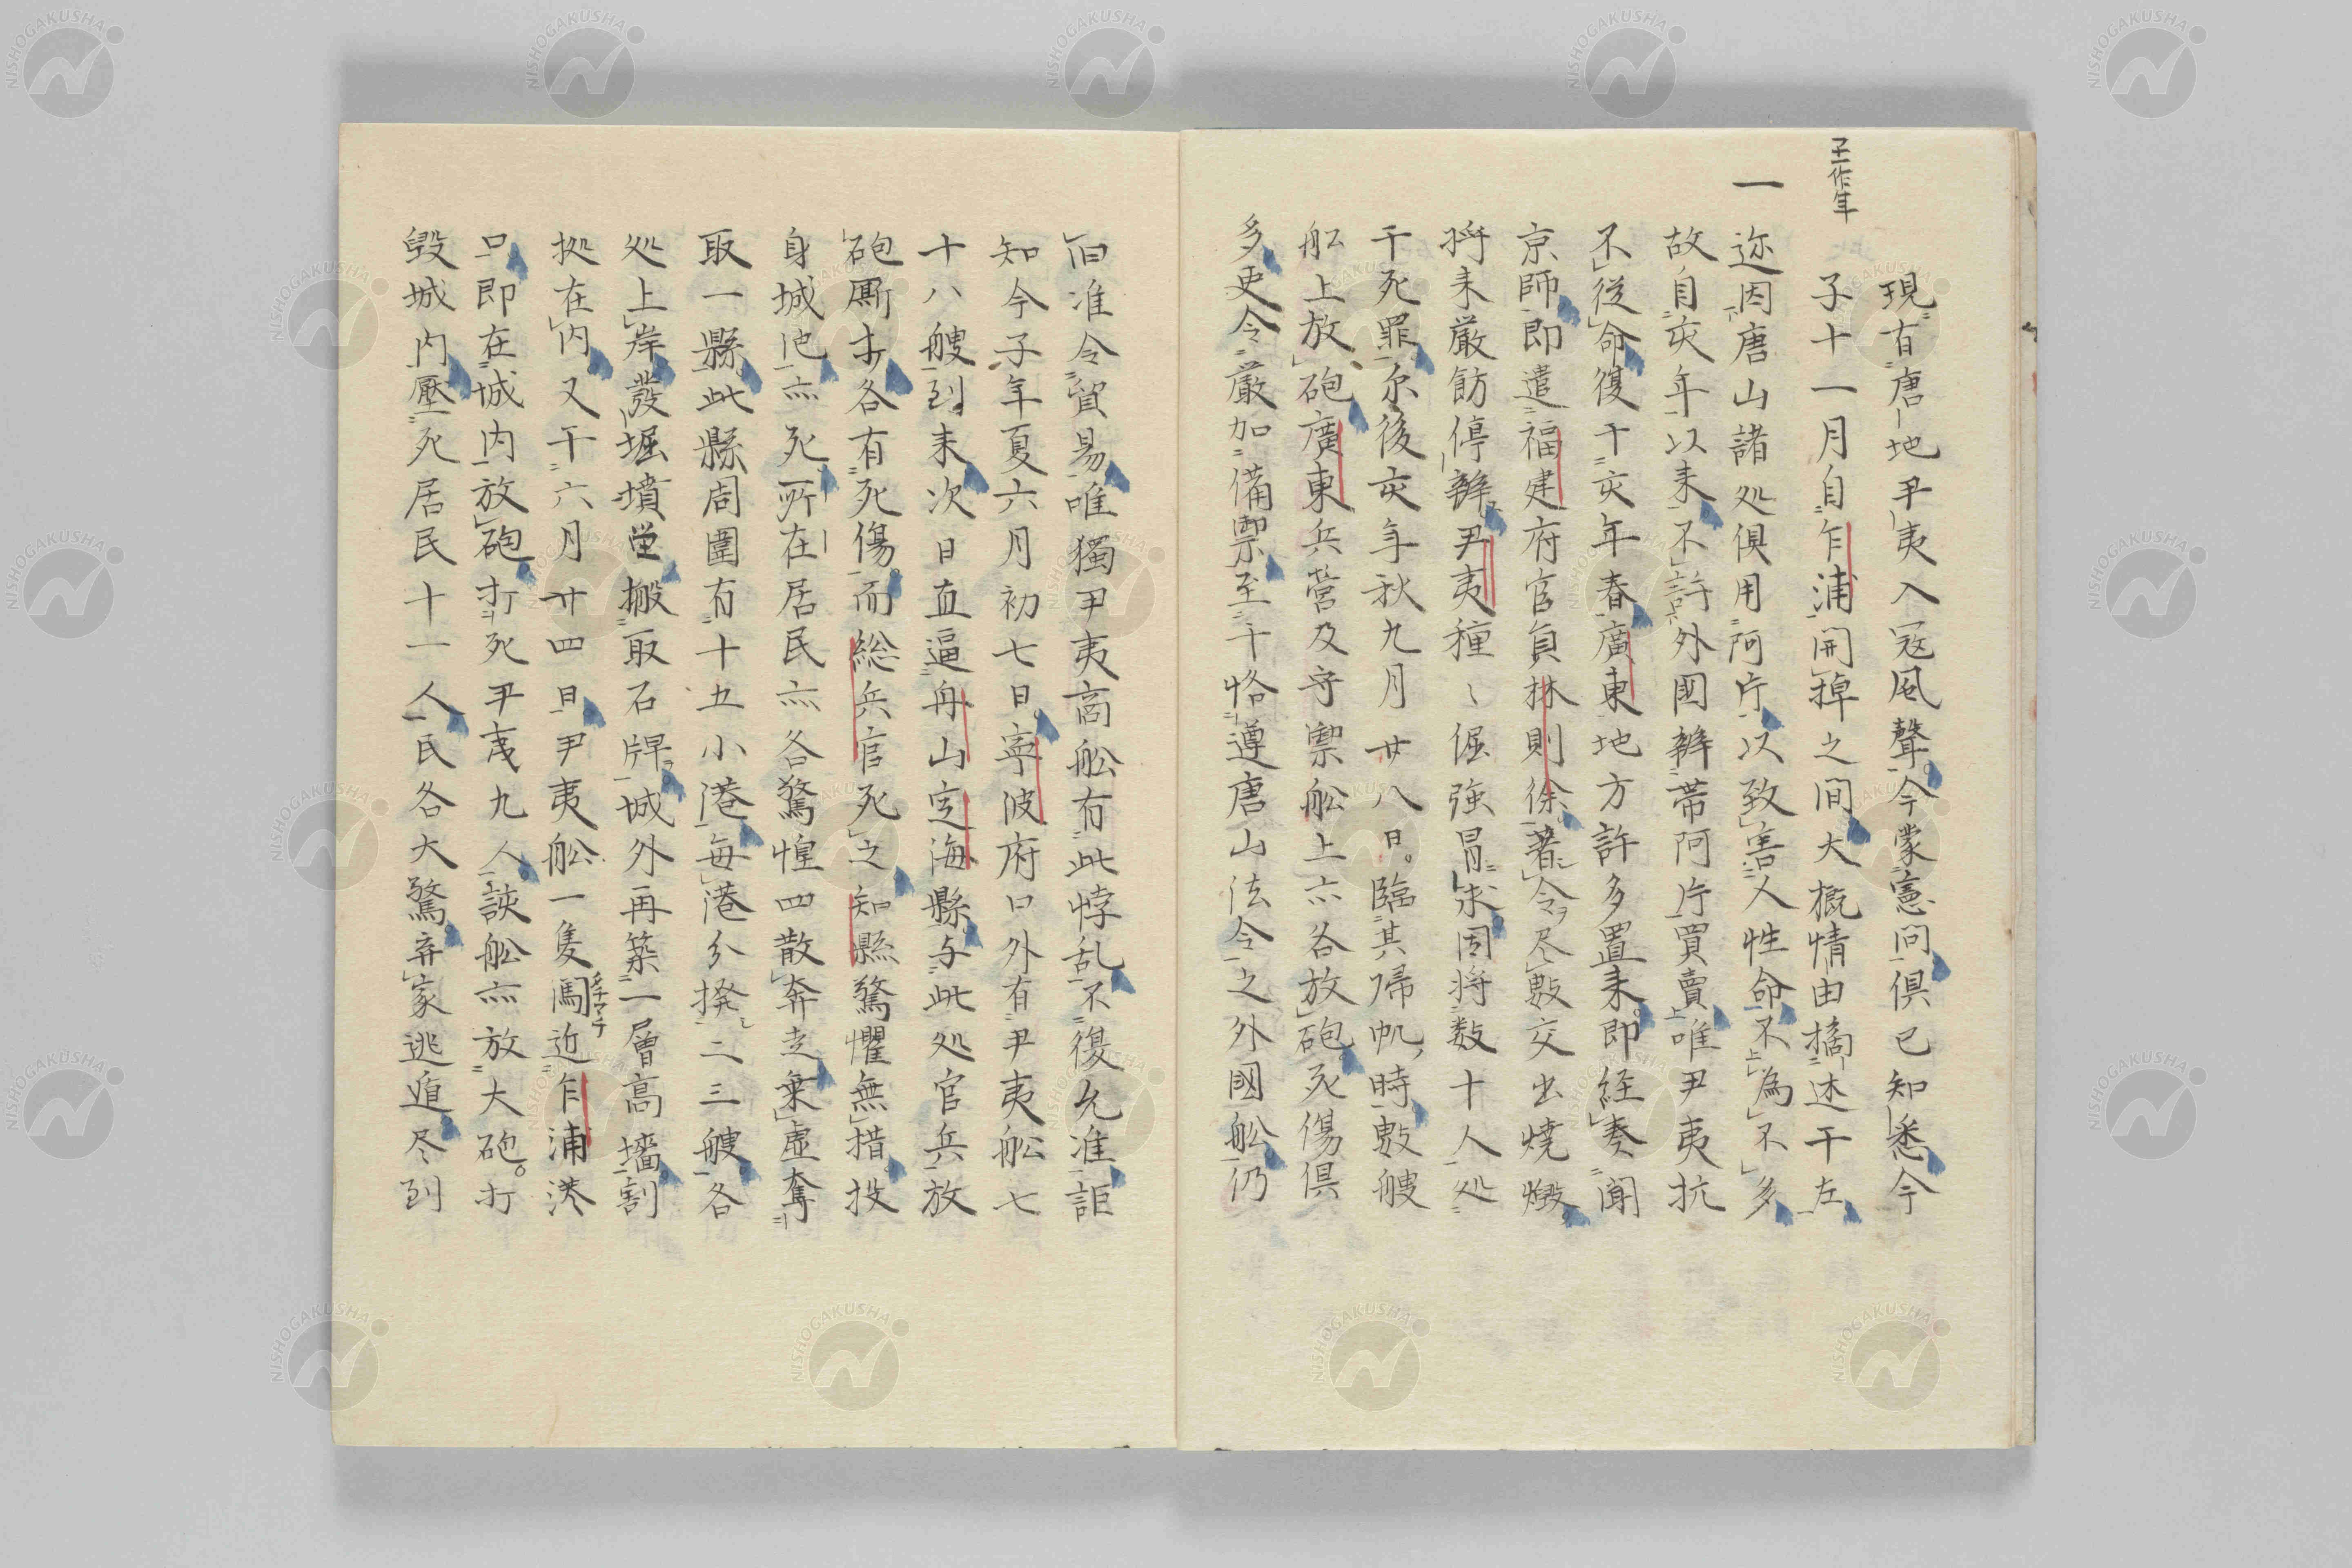 現有唐地尹夷入冦風聲今蒙憲问俱已知悉今
子十一月自乍浦開掉之间大概情由摘述干左
一
迩因唐山諸処俱用阿片以致害人性命不為不多
故自亥年以来不許外國辦帯阿片買賣唯尹夷抗
不從命復干亥年春廣東地方許多置来即経奏聞
京師即遣福建府官員林則徐著令尽數交出燒燬
将来厳飭停辦尹夷種〻倔強冒求固将数十人処
干死罪尓後亥年秋九月廿八日臨其帰帆時數艘
舩上放砲廣東兵营及守禦舩上六各放砲死傷俱
多更令厳加備禦至干恪遵唐山法令之外國舩仍
旧准令貿易唯獨尹夷商舩有此悖乱不復允准詎
知今子年夏六月初七日寧波府口外有尹夷舩七
十八艘到来次日直逼舟山定海縣与此処官兵放
砲厮才各有死傷而総兵官死之知縣驚懼無措投
身城池亦死所在居民亦各驚惶四散奔走棄虚奪
取一縣此縣周圍有十五小港每港分撥二三艘各
処上岸發堀墳茔搬取石牌城外再築一層高墻割
拠在内又干六月廿四日尹夷舩一隻闖近乍浦港
口即在城内放砲打死尹夷九人該舩亦放大砲打
毀城内壓死居民十一人民各大驚弃家逃遁尽到
子一作年
NISHOGAKUSHA